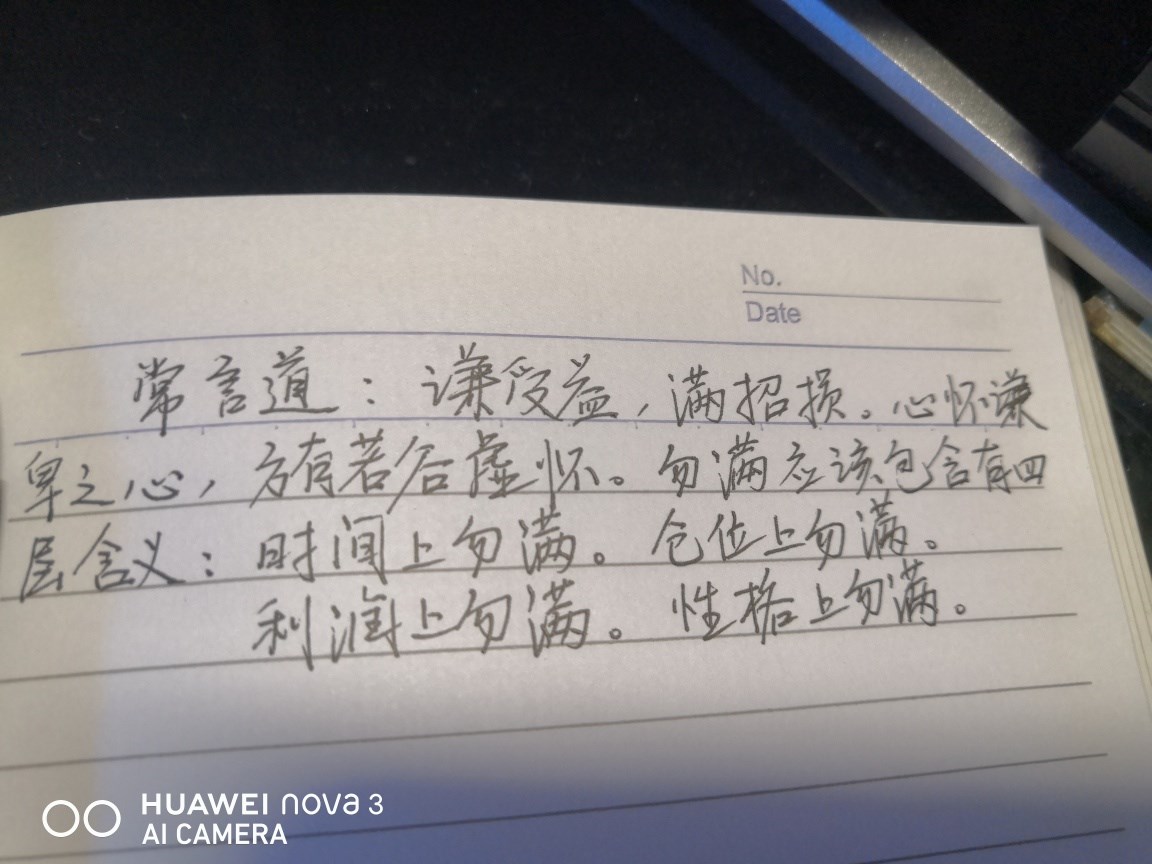 No.
Date
常言道：谦受益，满招损。心怀谦
卑之心，方有若谷虚怀。勿满应该包含有四
层含义：时间上勿满。仓位上勿满。
利润上勿满。性格上勿满。
HUAWEI nova 3
AI CAMERA